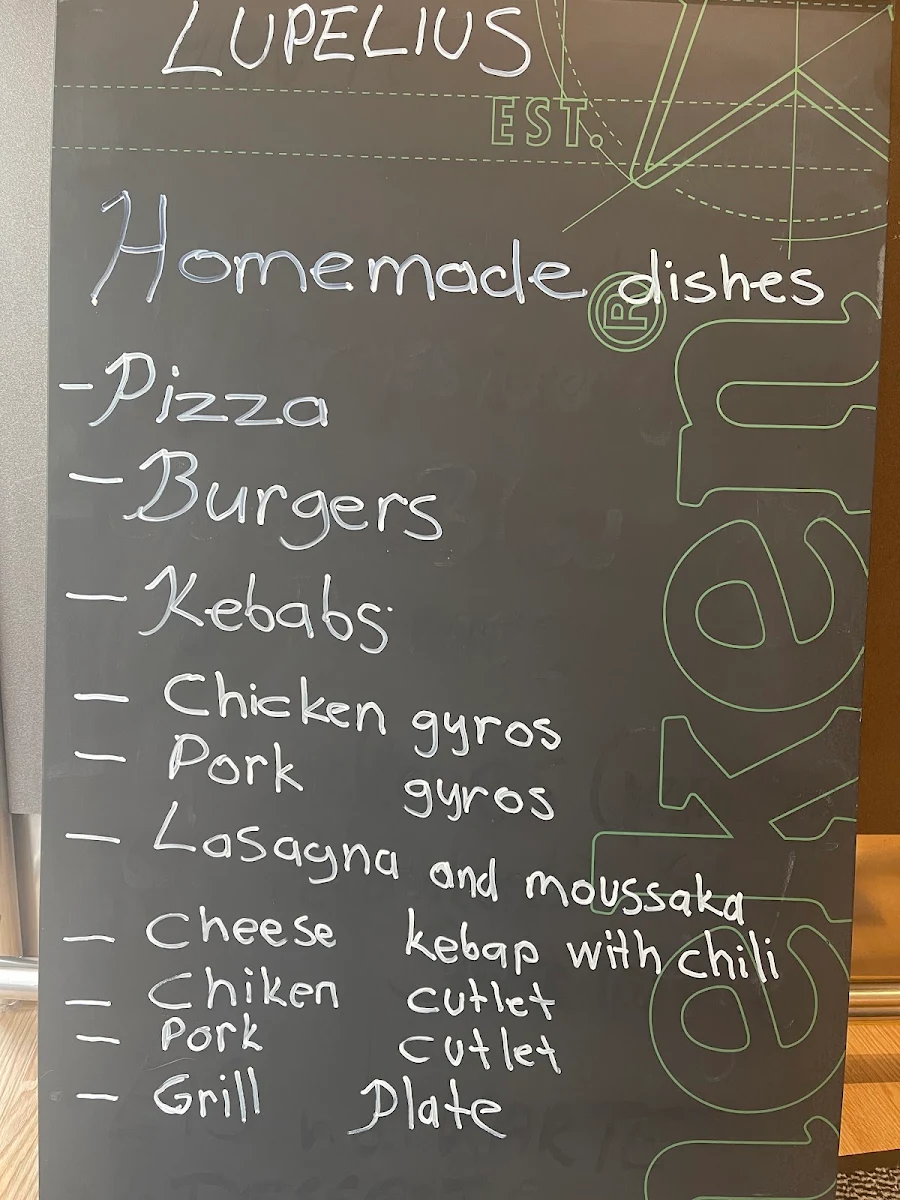 LUPELIUS
EST.
Homemade dishes
®
- Pizza
- Burgers
- Kebabs
- Chicken gyros
- Pork gyros
- Lasagna and moussaka
- Cheese kebap with chili
- Chiken cutlet
- Pork cutlet
- Grill Plate